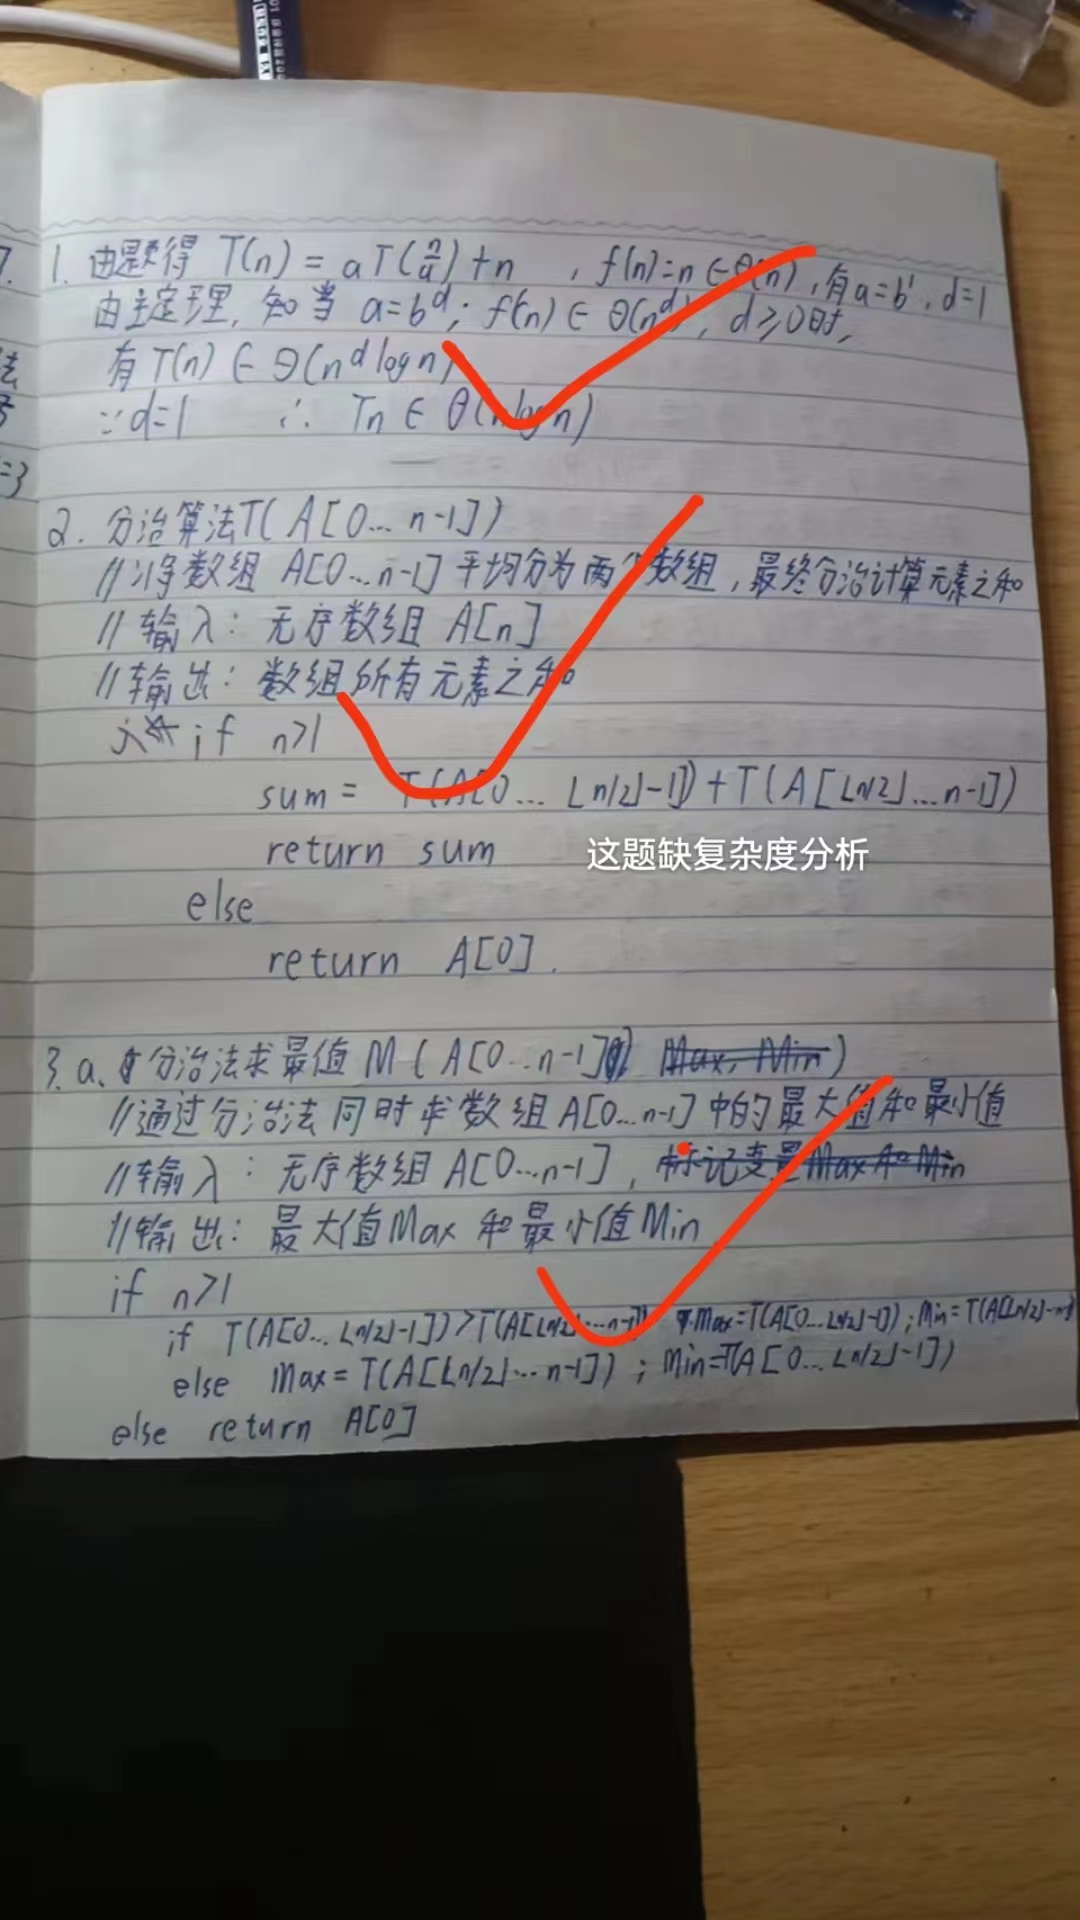 7.
1. 由题得 T(n) = aT(n/a)+n , f(n)=n∈Θ(n), 有a=b¹, d=1
由主定理, 知当 a=b^d; f(n)∈Θ(n^d), d≥0时,
法
有 T(n)∈Θ(n^d logn)
∵d=1 ∴ Tn∈Θ(nlogn)
=3
2. 分治算法T(A[0...n-1])
//将数组 A[0...n-1]平均分为两个数组,最终分治计算元素之和
//输入: 无序数组 A[n]
//输出: 数组所有元素之和
if n>1
sum = T(A[0...⌊n/2⌋-1])+T(A[⌊n/2⌋...n-1])
return sum
这题缺复杂度分析
else
return A[0].
3. a. 分治法求最值 M(A[0...n-1] Max, Min)
//通过分治法同时求数组A[0...n-1]中的最大值和最小值
//输入: 无序数组A[0...n-1], 标记变量Max和Min
//输出: 最大值Max和最小值Min
if n>1
if T(A[0...⌊n/2⌋-1])>T(A[⌊n/2⌋...n-1]) Max=T(A[0...⌊n/2⌋-1]); Min=T(A[⌊n/2⌋-n-1])
else Max=T(A[⌊n/2⌋...n-1]); Min=T(A[0...⌊n/2⌋-1])
else return A[0]